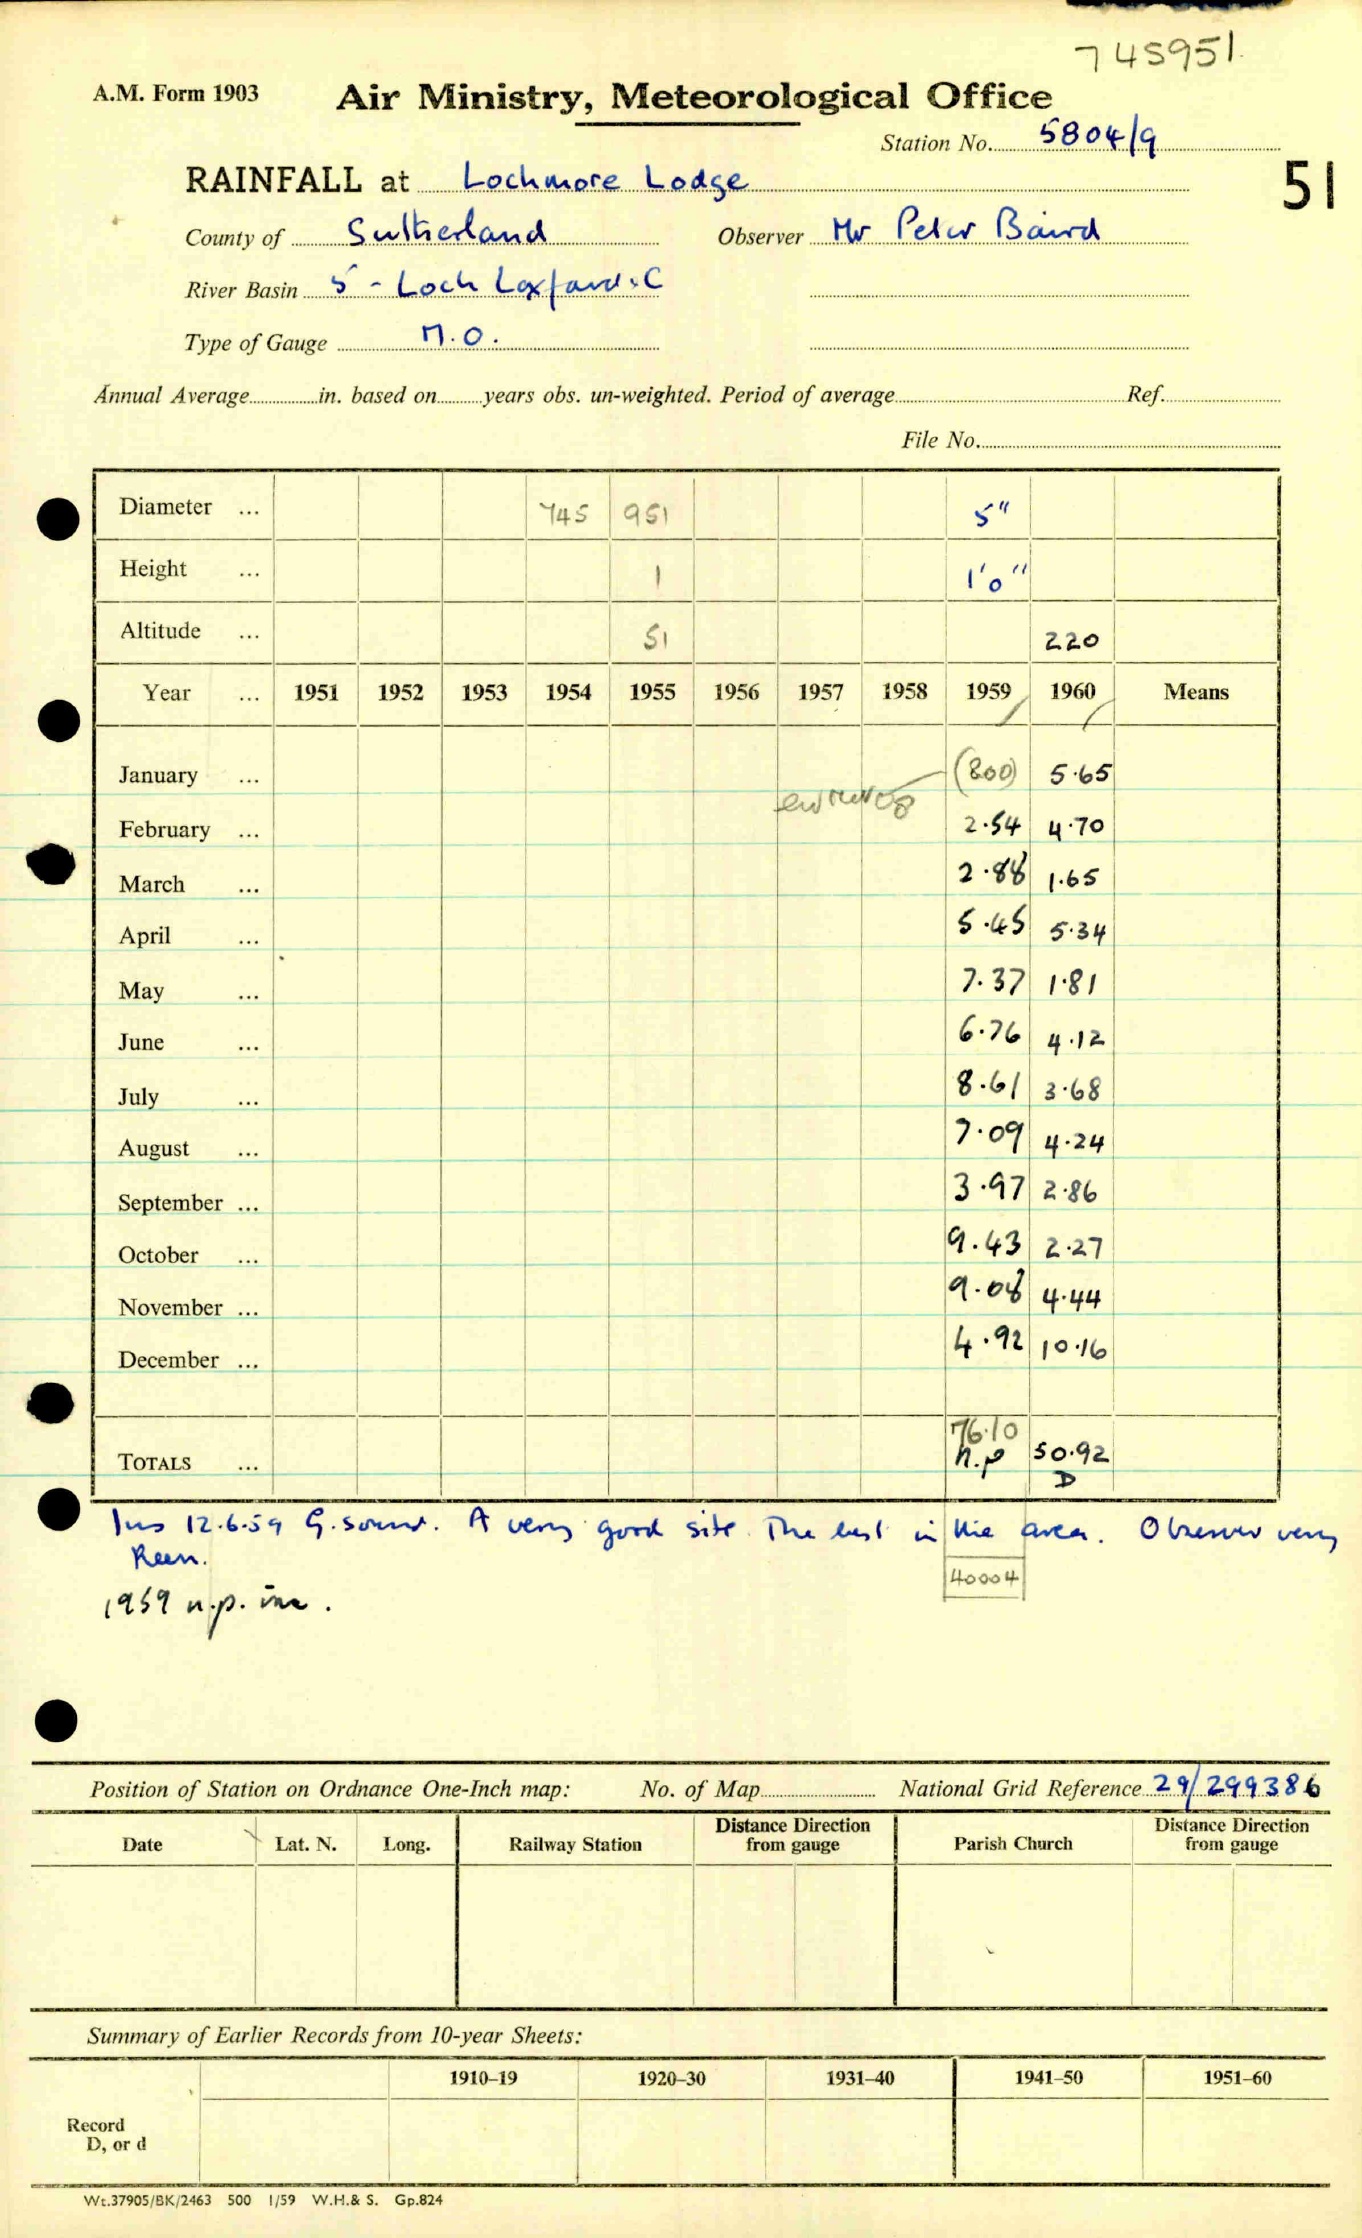 745951
A.M. Form 1903 Air Ministry, Meteorological Office
Station No. 5804/9
RAINFALL at Lochmore Lodge
51
County of Sutherland Observer Mr Peter Baird
River Basin 5 - Loch Laxford.C
Type of Gauge M.O.
Annual Average in. based on years obs. un-weighted. Period of average Ref.
File No.
Diameter ... 745 951 5"
Height ... 1 1'0"
Altitude ... 51 220
Year ... 1951 1952 1953 1954 1955 1956 1957 1958 1959 1960 Means
January ... (800) 5.65
February ... 2.54 4.70
March ... 2.88 1.65
April ... 5.45 5.34
May ... 7.37 1.81
June ... 6.76 4.12
July ... 8.61 3.68
August ... 7.09 4.24
September ... 3.97 2.86
October ... 9.43 2.27
November ... 9.08 4.44
December ... 4.92 10.16
76.10
TOTALS ... n.p 50.92
D
Ins 12.6.59 G.sound. A very good site. The best in the area. Observer very
Keen.
40004
1959 n.p. inc.
Position of Station on Ordnance One-Inch map: No. of Map National Grid Reference 29/299386
Date Lat. N. Long. Railway Station Distance Direction from gauge Parish Church Distance Direction from gauge
Summary of Earlier Records from 10-year Sheets:
1910-19 1920-30 1931-40 1941-50 1951-60
Record
D, or d
Wt.37905/BK/2463 500 1/59 W.H.& S. Gp.824